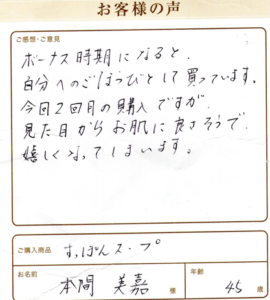 お客様の声
ご感想・ご意見
ボーナス時期になると、
自分へのごほうびとして買っています。
今回2回目の購入ですが、
見た目からお肌に良さそうで
嬉しくなってしまいます。
ご購入商品 すっぽんスープ
お名前 本間 美嘉 様 年齢 45 歳